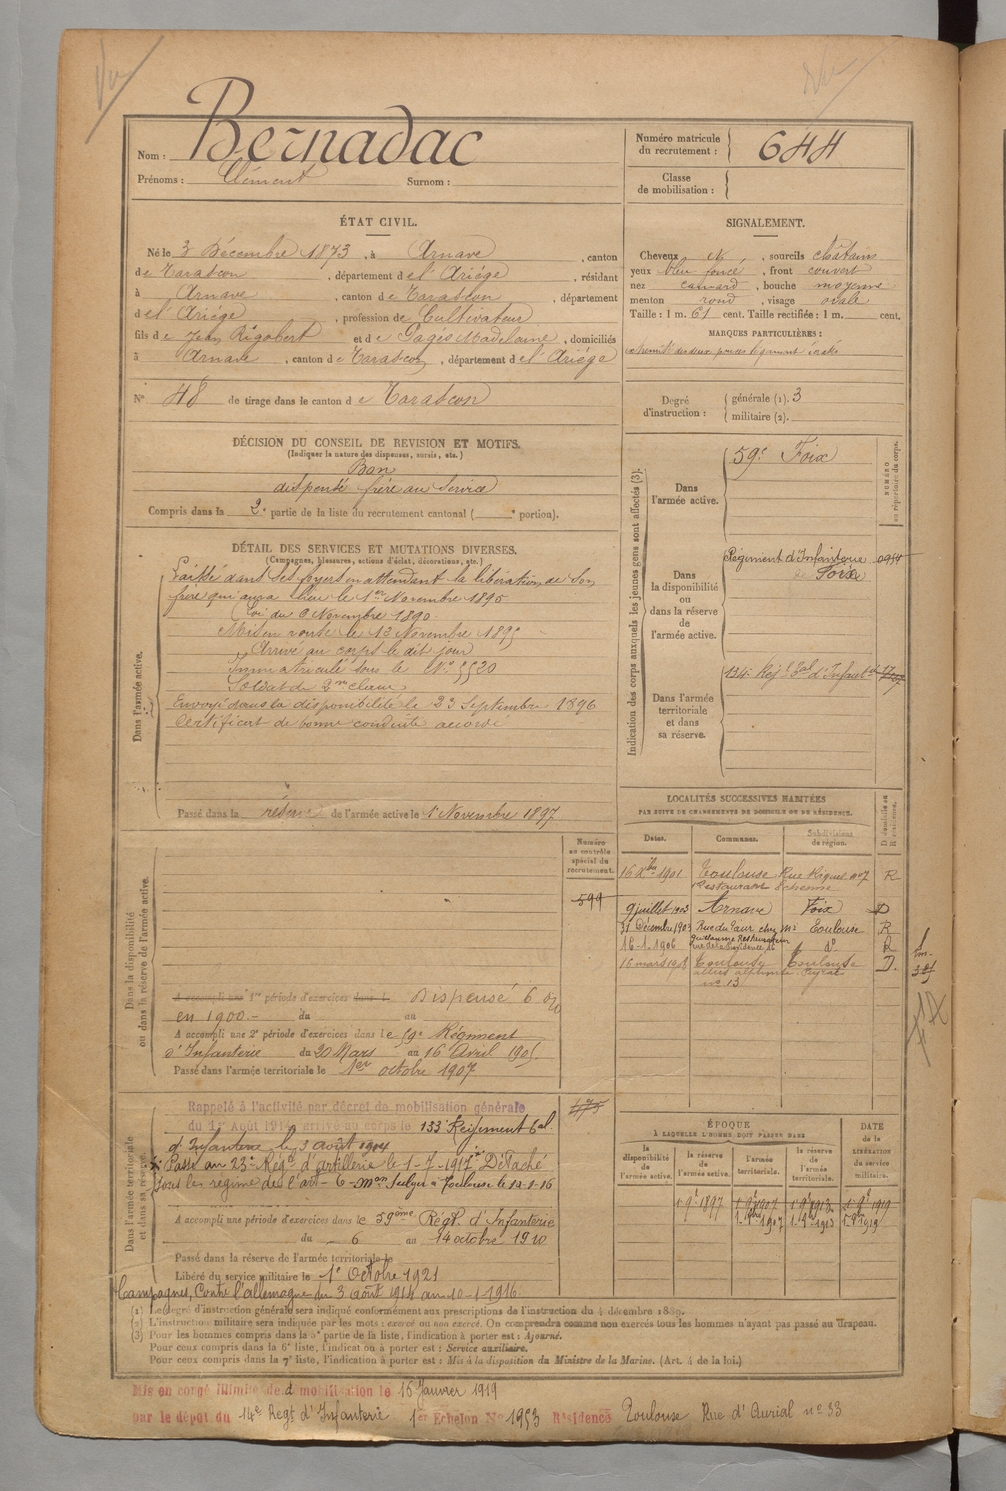 Vu
Nom : Bernadac
Prénoms : Clément Surnom :
Numéro matricule du recrutement : 644
Classe de mobilisation :
ÉTAT CIVIL.
Né le 3 Décembre 1873, à Arnave, canton
de Tarascon, département de l'Ariége, résidant
à Arnave, canton de Tarascon, département
de l'Ariége, profession de Cultivateur
fils de Jean Rigobert et de Pagès Madelaine, domiciliés
à Arnave, canton de Tarascon, département de l'Ariége
N° 48 de tirage dans le canton de Tarascon
SIGNALEMENT.
Cheveux N, sourcils châtains
yeux bleu foncé, front couvert
nez camard, bouche moyenne
menton rond, visage ovale
Taille : 1 m. 61 cent. Taille rectifiée : 1 m. cent.
MARQUES PARTICULIÈRES :
extremité des deux pouces légèrement écrasés
Degré d'instruction : générale (1). 3
militaire (2).
DÉCISION DU CONSEIL DE REVISION ET MOTIFS.
(Indiquer la nature des dispenses, sursis, etc.)
Bon
dispensé frère au Service
Compris dans la 2e partie de la liste du recrutement cantonal ( e portion).
DÉTAIL DES SERVICES ET MUTATIONS DIVERSES.
(Campagnes, blessures, actions d'éclat, décorations, etc.)
Dans l'armée active.
Laissé dans ses foyers en attendant la libération de son
frère qui aura lieu le 1er Novembre 1895
(Loi du 6 Novembre 1890
Mis en route le 13 Novembre 1895
Arrivé au corps le dit jour
Immatriculé sous le N° 5520
Soldat de 2me classe
Envoyé dans la disponibilité le 23 Septembre 1896
Certificat de bonne conduite accordé
Passé dans la réserve de l'armée active le 1r Novembre 1897
Indication des corps auxquels les jeunes gens sont affectés (3).
NUMÉRO au répertoire du corps.
Dans l'armée active.
59e Foix
Dans la disponibilité ou dans la réserve de l'armée active.
Régiment d'Infanterie 0954
de Foix
Dans l'armée territoriale et dans sa réserve.
134e Regt Tal d'Infantie
LOCALITÉS SUCCESSIVES HABITÉES
PAR SUITE DE CHANGEMENTS DE DOMICILE OU DE RÉSIDENCE.
Dates. Communes. Subdivisions de région. D domicile ou R résidence.
16 Xbre 1901 Toulouse Rue Riquet n°7 R
Restaurant
9 juillet 1903 Arnave Foix D
31 Décembre 1903 Rue du Taur chez Mr Toulouse R
16-1-1906 Guillaume Restaurateur do R
16 mars 1908 Toulouse Toulouse D.
n° 13
Numéro au contrôle spécial du recrutement.
599
Dans la disponibilité ou dans la réserve de l'armée active.
A accompli une 1re période d'exercices dans l. Dispensé 6 o/o
en 1900.- du au
A accompli une 2e période d'exercices dans le 59e Régiment
d'Infanterie du 20 Mars au 16 Avril 1905.
Passé dans l'armée territoriale le 1er octobre 1907
475
Dans l'armée territoriale et dans sa réserve.
Rappelé à l'activité par décret de mobilisation générale
du 1er Août 1914 arrivé au corps le 133e Régiment Tal
d'Infanterie le 3 août 1914
Passé au 23e Régt d'artillerie le 1-7-1917. Détaché
sous le régime de l'art-6-Mon à Toulouse le 10-1-16
A accompli une période d'exercices dans le 59ème Régt. d'Infanterie
du 6 au 14 octobre 1910
Passé dans la réserve de l'armée territoriale le
Libéré du service militaire le 1er Octobre 1921
Campagnes, Contre l'allemagne du 3 août 1914 au 10-1-1916.
ÉPOQUE
A LAQUELLE L'HOMME DOIT PASSER DANS
la disponibilité de l'armée active. la réserve de l'armée active. l'armée territoriale. la réserve de l'armée territoriale. DATE de la LIBÉRATION du service militaire.
1 9bre 1897 1 9bre 1907 1 9bre 1913 1 9bre 1919
1 8bre 1907 1 8bre 1913 1 8bre 1919
(1) Le degré d'instruction générale sera indiqué conformément aux prescriptions de l'instruction du 4 décembre 1889.
(2) L'instruction militaire sera indiquée par les mots : exercé ou non exercé. On comprendra comme non exercés tous les hommes n'ayant pas passé au drapeau.
(3) Pour les hommes compris dans la 5e partie de la liste, l'indication à porter est : Ajourné.
Pour ceux compris dans la 6e liste, l'indication à porter est : Service auxiliaire.
Pour ceux compris dans la 7e liste, l'indication à porter est : Mis à la disposition du Ministre de la Marine. (Art. 4 de la loi.)
Mis en congé illimité de démobilisation le 16 Janvier 1919
par le dépôt du 14e Regt d'Infanterie 1er Echelon N° 1953 Résidence Toulouse Rue d'Aurial n° 33